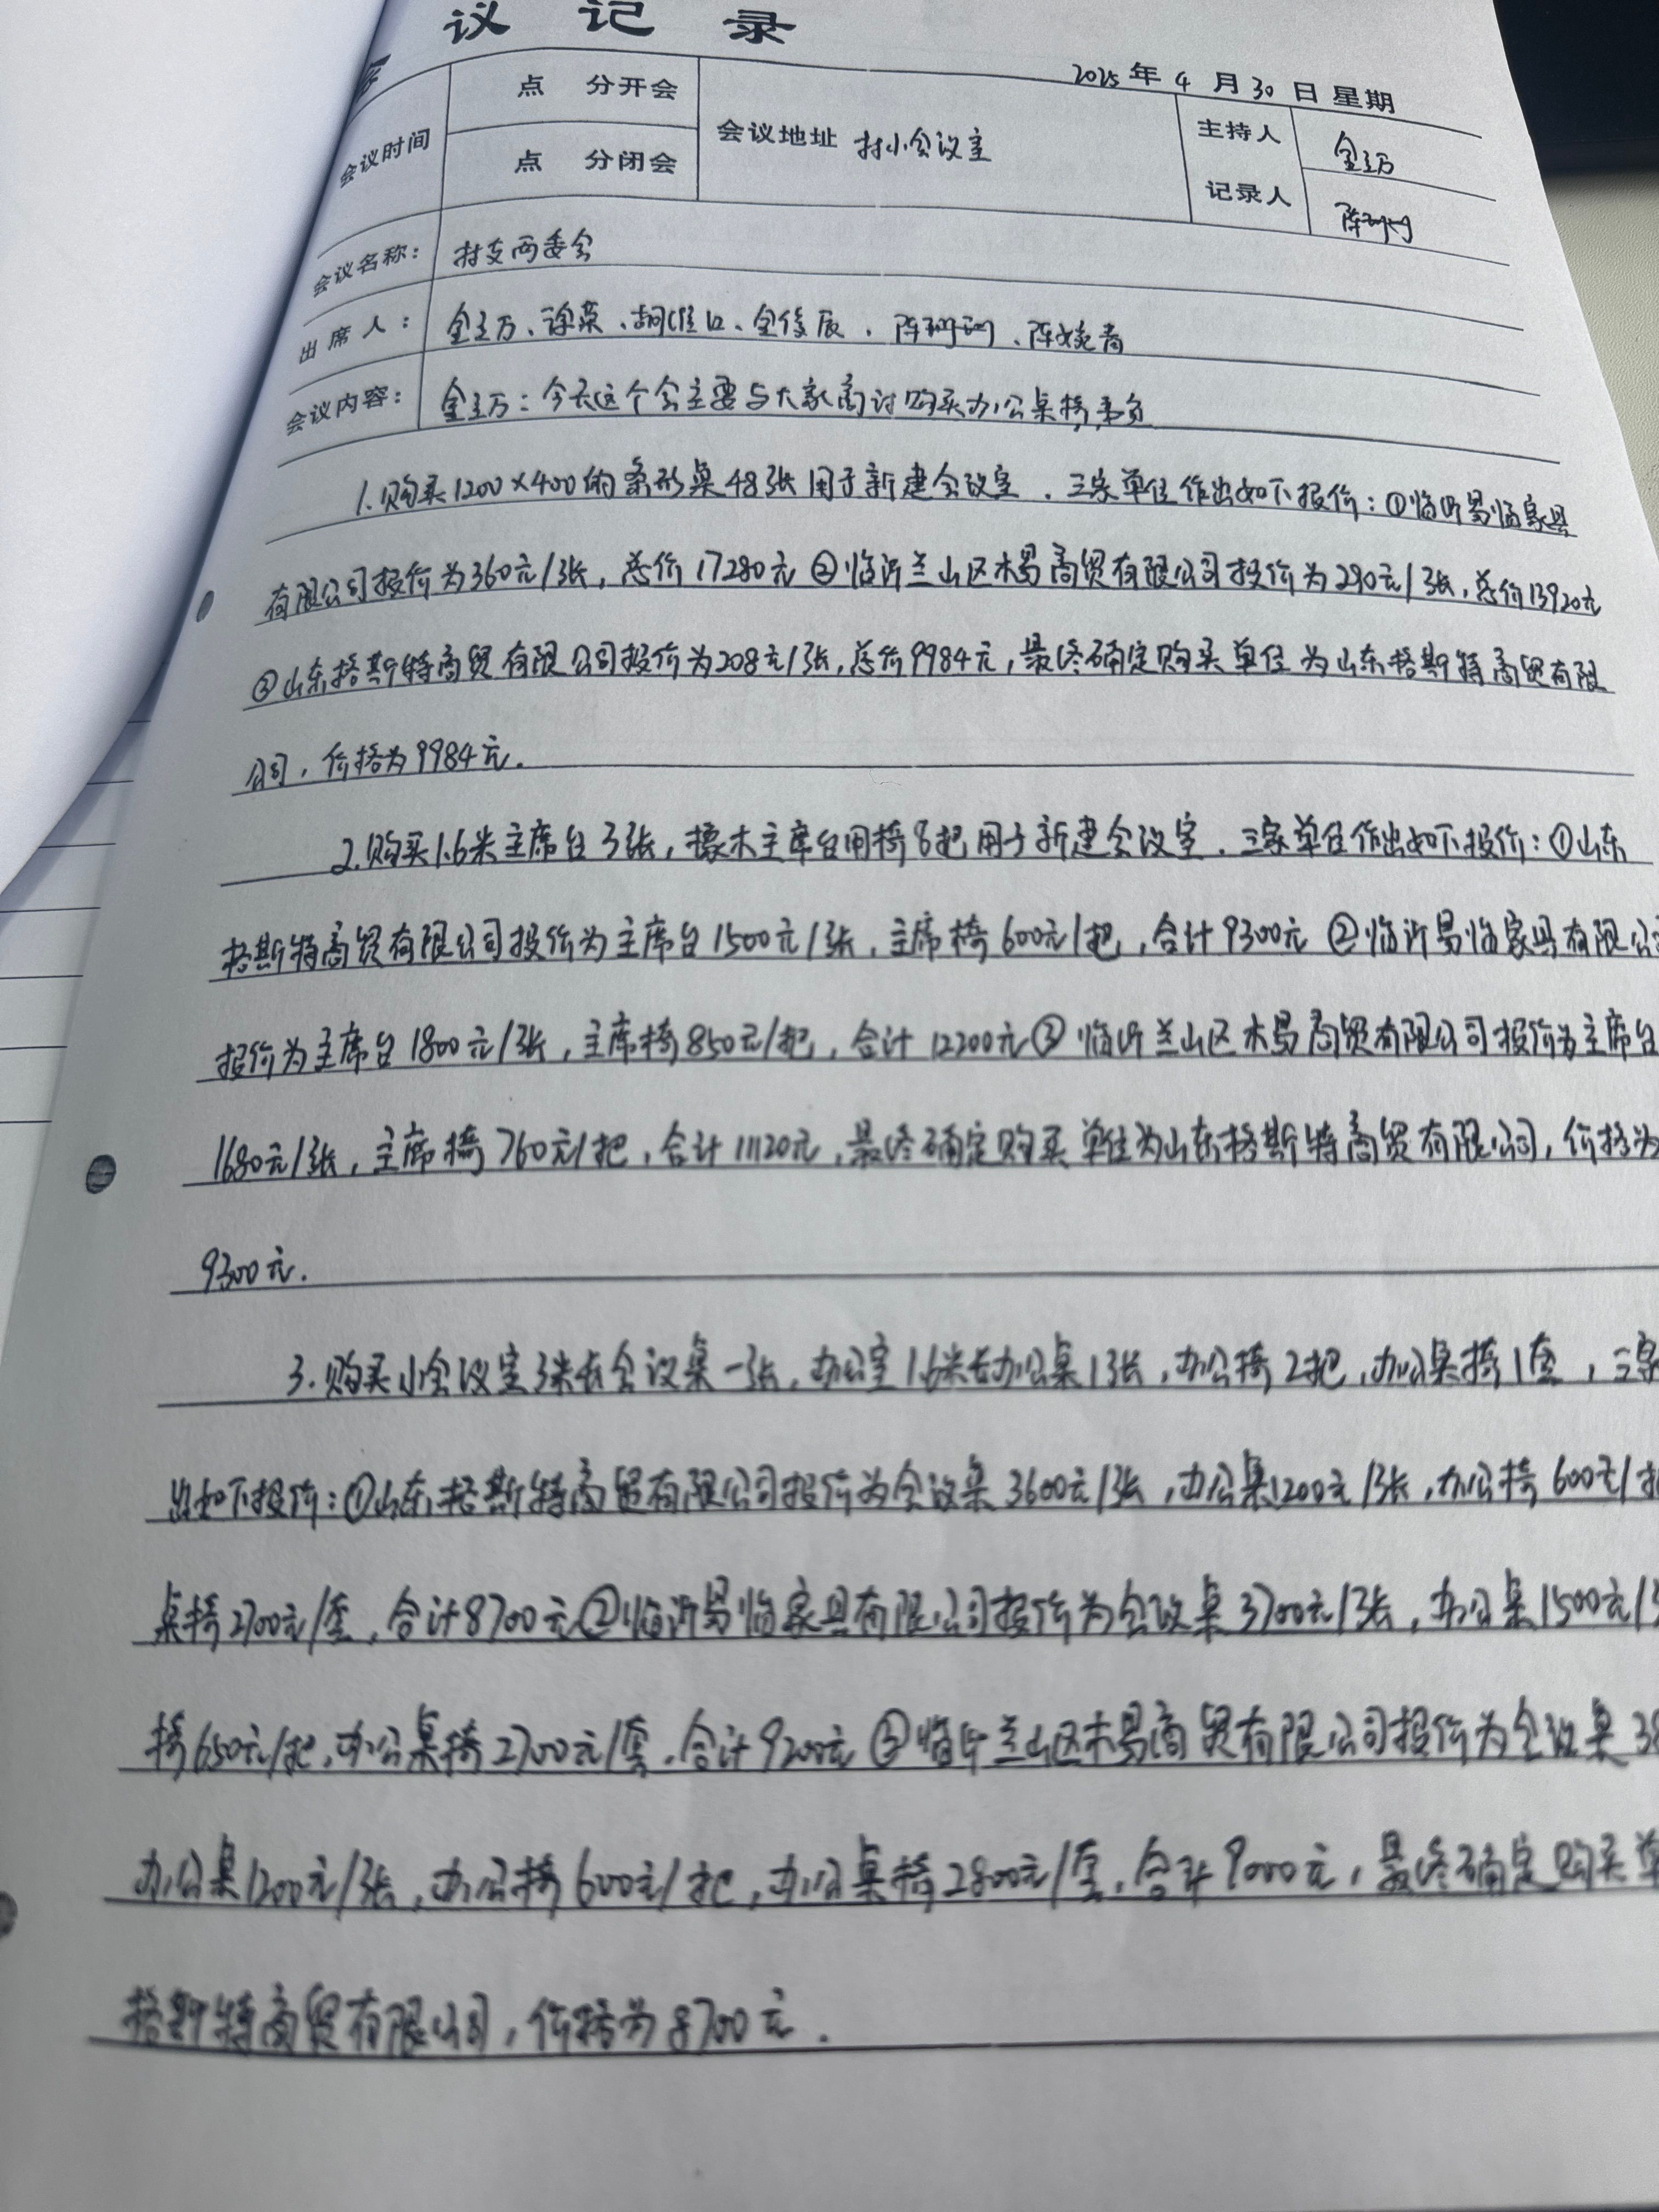 议 记 录
2025 年 4 月 30 日 星期
会议时间
点 分开会
点 分闭会
会议地址 村小会议室
主持人
记录人
会议名称: 村支两委会
出席人: 金立万、徐荣、金俊辰、陈珊珊、
会议内容: 金立万:今天这个会主要与大家商讨购买办公桌椅事负
1.购买1200×400的条形桌48张用于新建会议室.三家单位作出如下报价:①临沂易临家具
有限公司报价为360元/张,总价17280元②临沂兰山区木易商贸有限公司报价为290元/张,总价13920元
③山东格斯特商贸有限公司报价为208元/张,总价9984元,最终确定购买单位为山东格斯特商贸有限
公司,价格为9984元.
2.购买1.6米主席台3张,橡木主席台用椅8把用于新建会议室.三家单位作出如下报价:①山东
格斯特商贸有限公司报价为主席台1500元/张,主席椅600元/把,合计9300元②临沂易临家具有限公
报价为主席台1800元/张,主席椅850元/把,合计12200元③临沂兰山区木易商贸有限公司报价为主席台
1680元/张,主席椅760元/把,合计11120元,最终确定购买单位为山东格斯特商贸有限公司,价格为
9300元.
3.购买小会议室3米长会议桌一张,办公室1.6米长办公桌1张,办公椅2把,办公桌椅1套,三家
出如下报价:①山东格斯特商贸有限公司报价为会议桌3600元/张,办公桌1200元/张,办公椅600元/
桌椅2700元/套,合计8700元②临沂易临家具有限公司报价为会议桌3700元/张,办公桌1500元/
椅650元/把,办公桌椅2700元/套,合计9200元③临沂兰山区木易商贸有限公司报价为会议桌38
办公桌1200元/张,办公椅600元/把,办公桌椅2800元/套,合计9000元,最终确定购买单
格斯特商贸有限公司,价格为8700元.